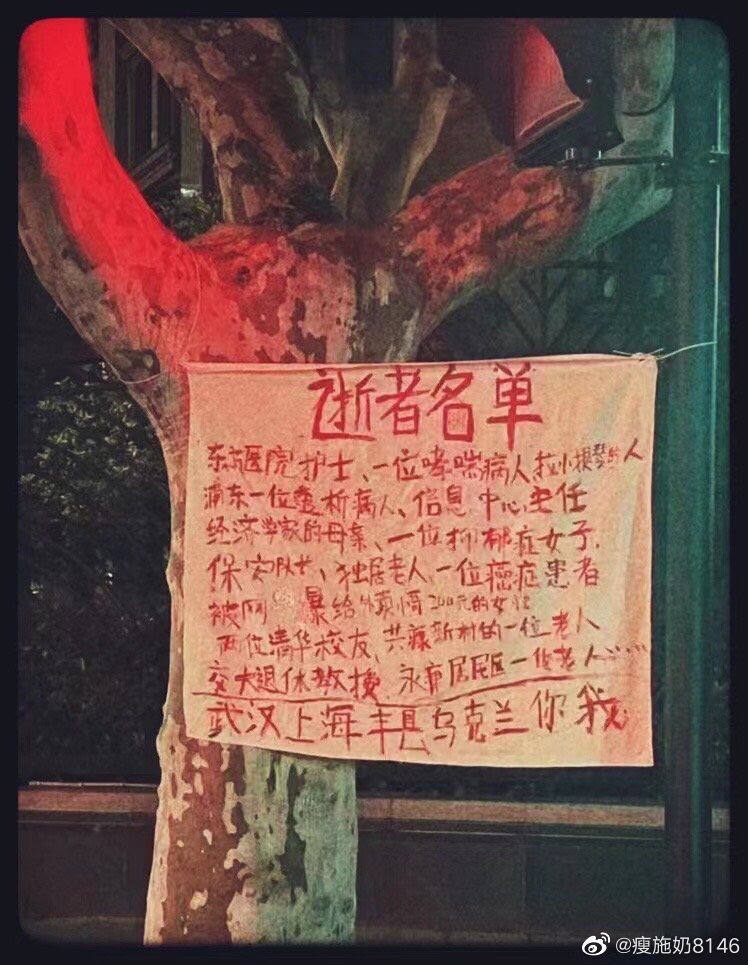 逝者名单
东方医院护士、一位哮喘病人、拉小提琴的人
浦东一位透析病人、信息中心主任
经济学家的母亲、一位抑郁症女子、
保安队长、独居老人、一位癌症患者
被网暴给外卖小哥200元的女性
两位清华校友、共康新村的一位老人
交大退休教授、永南居民区一位老人……
武汉上海丰县乌克兰你我
@瘦施奶8146